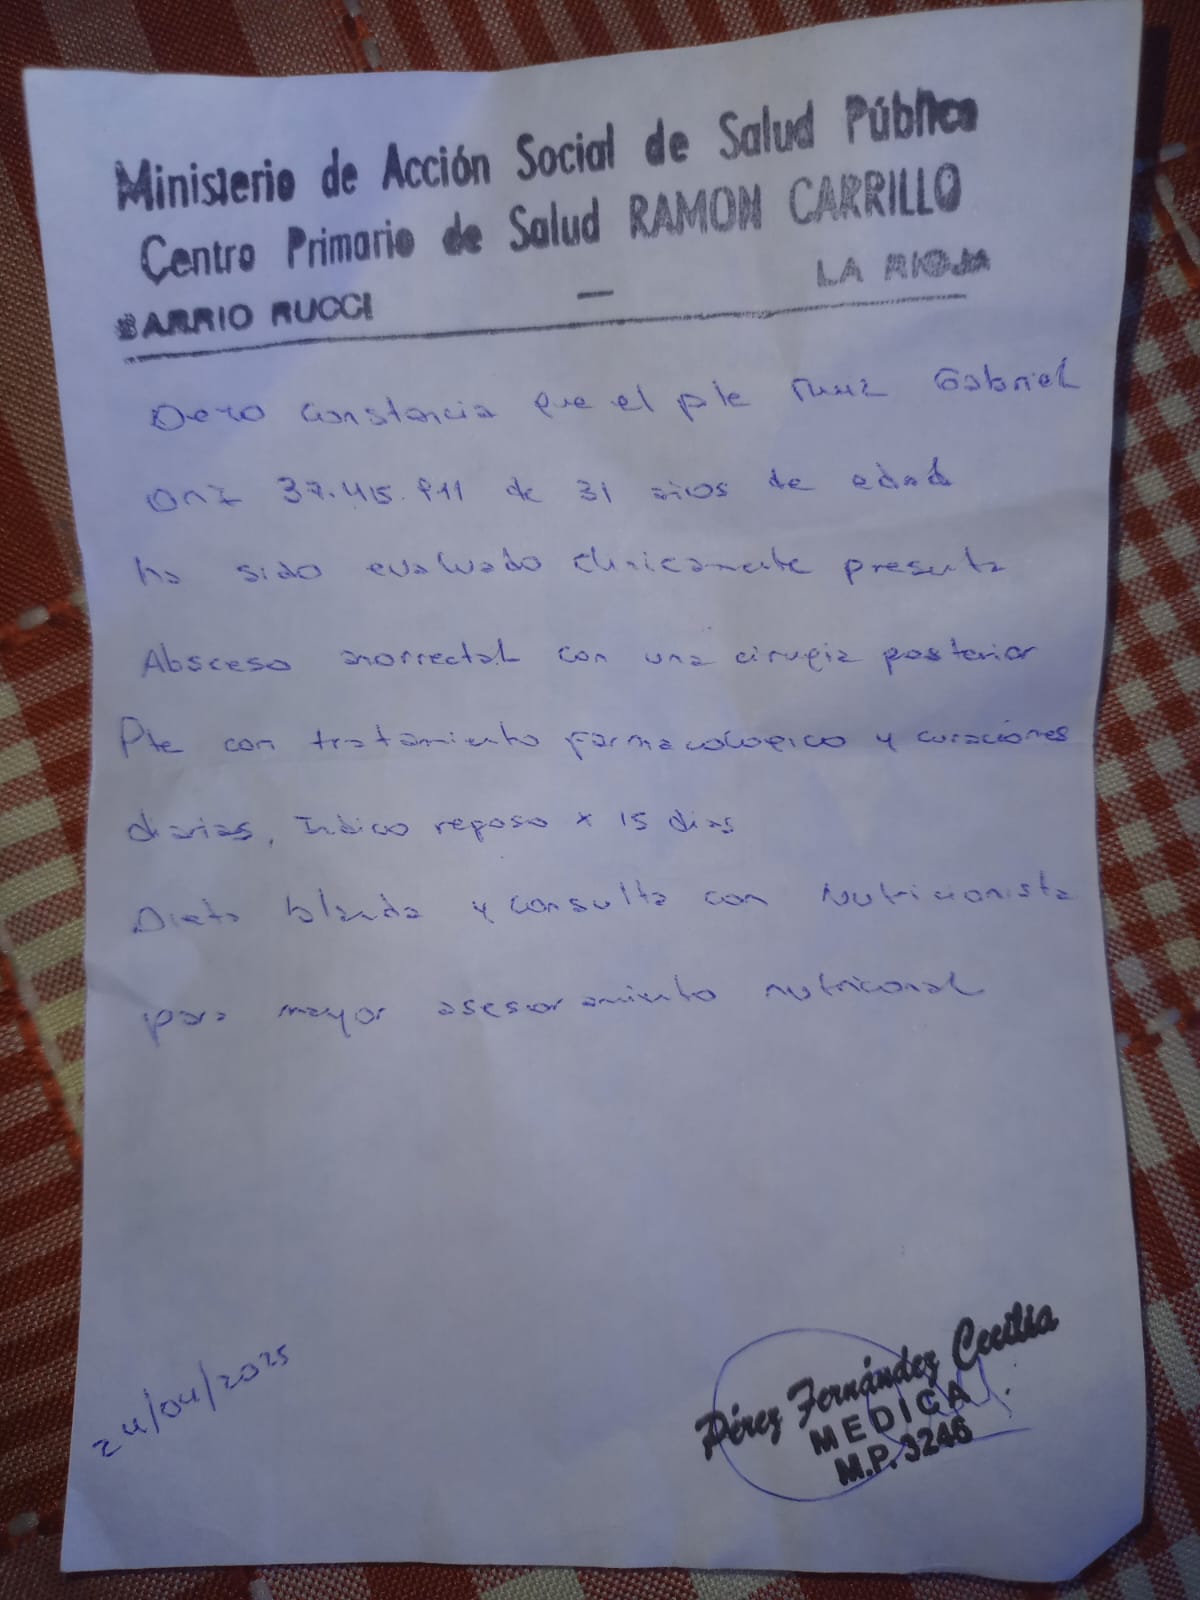 Ministerio de Acción Social de Salud Público
Centro Primario de Salud RAMON CARRILLO
BARRIO RUCCI — LA RIOJA
Dejo constancia que el pte Gabriel
DNI 37.415.911 de 31 años de edad
ha sido evaluado clinicamente presenta
Absceso anorrectal con una cirugia posterior
Pte con tratamiento farmacologico y curaciones
diarias, Indico reposo x 15 dias
Dieta blanda y consulta con Nutricionista
para mayor asesoramiento nutriconal
24/04/2025
Pérez Fernández Cecilia
MEDICA
M.P. 3246